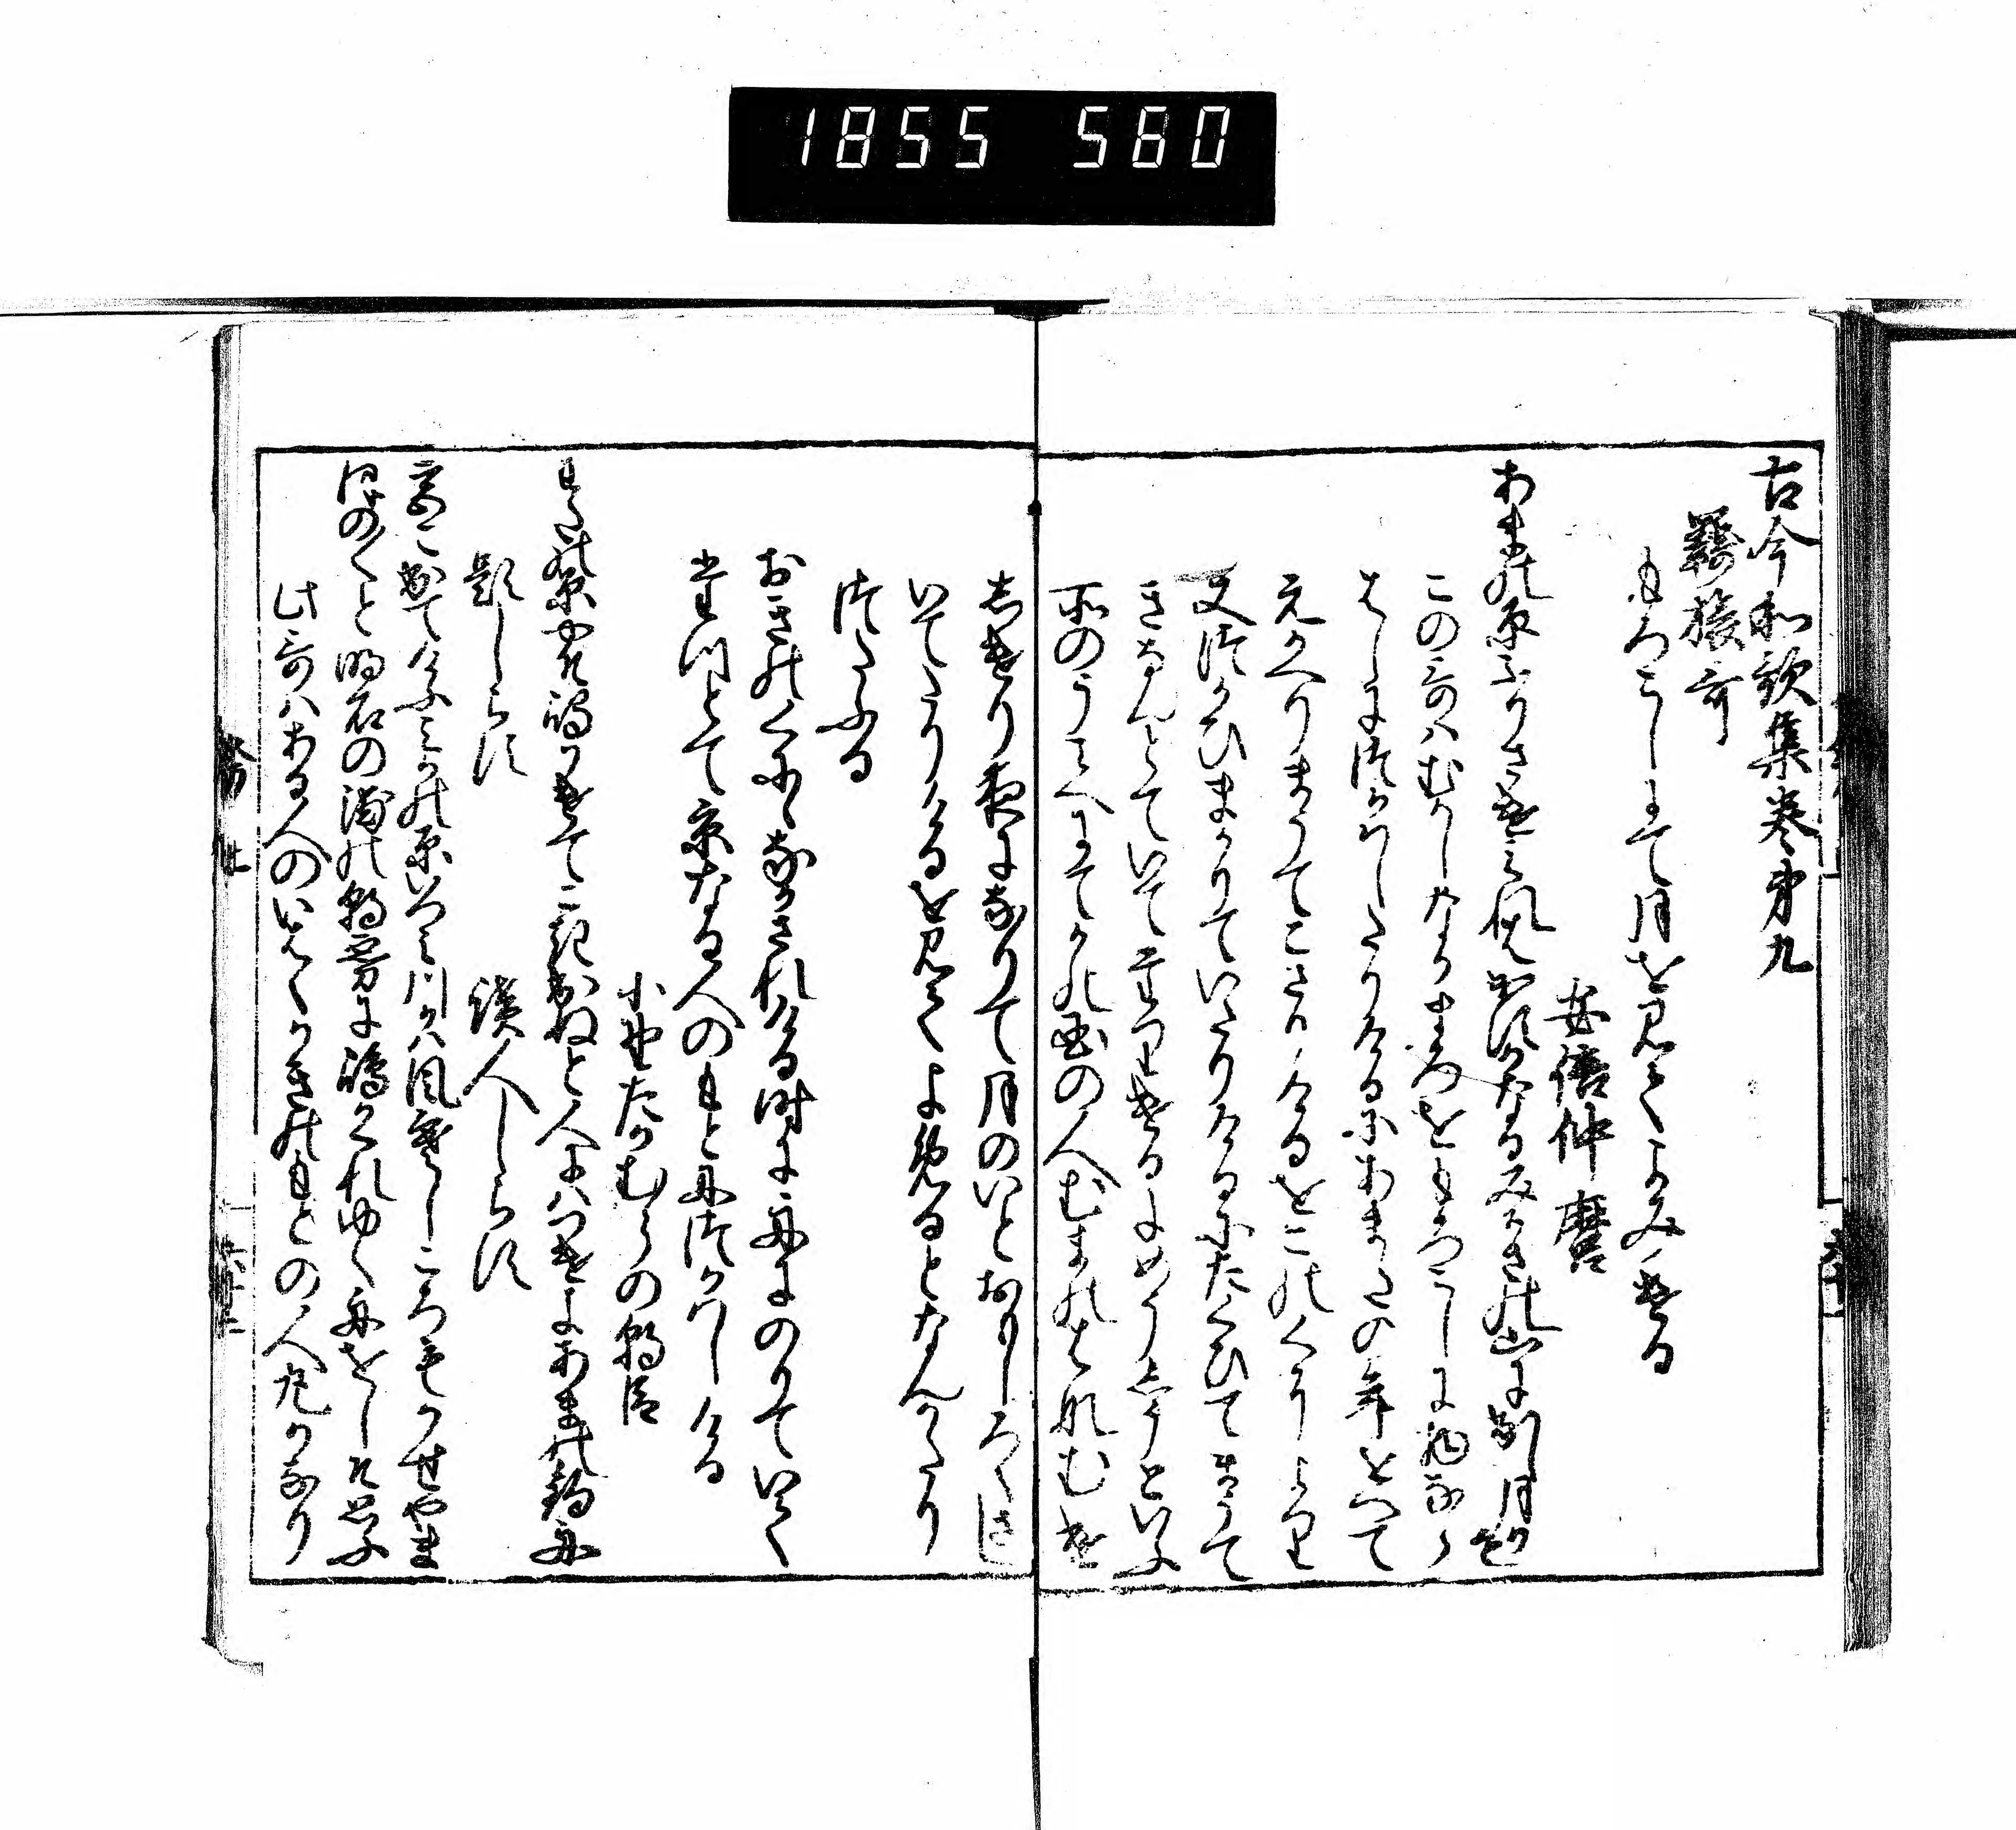 1855 580
古今和歌集巻第九
羇旅哥
もろこしにて月を見てよみける
安倍仲麿
あまの原ふりさけみれはかすかなるみかさの山に出し月かも
この哥はむかしなかまろをもろこしに物ならは
しにつかはしたりけるにあまたの年をへて
えかへりまうてこさりけるをこのくによりまた
つかひまかりていたりけるにたくひてまうて
きなんとていてたちけるにめいしうといふ
所のうみへにてかの国の人むまのはなむけ
しけりよるになりて月のいとおもしろくさし
いてたりけるを見てよめるとなんかたり
つたふる
おきのくににながされける時に舟にのりていてたつ
とて京なる人のもとにつかはしける
小野たかむらの朝臣
わたの原やそ嶋かけてこきいてぬと人にはつけよあまの釣舟
題しらす
読人しらす
都いてて今日みかの原いつみ川かは風さむしころもかせやま
ほの〱と明石の浦の朝霧に嶋かくれゆく舟をしそ思ふ
此哥はある人のいはくかきのもとの人丸かなり